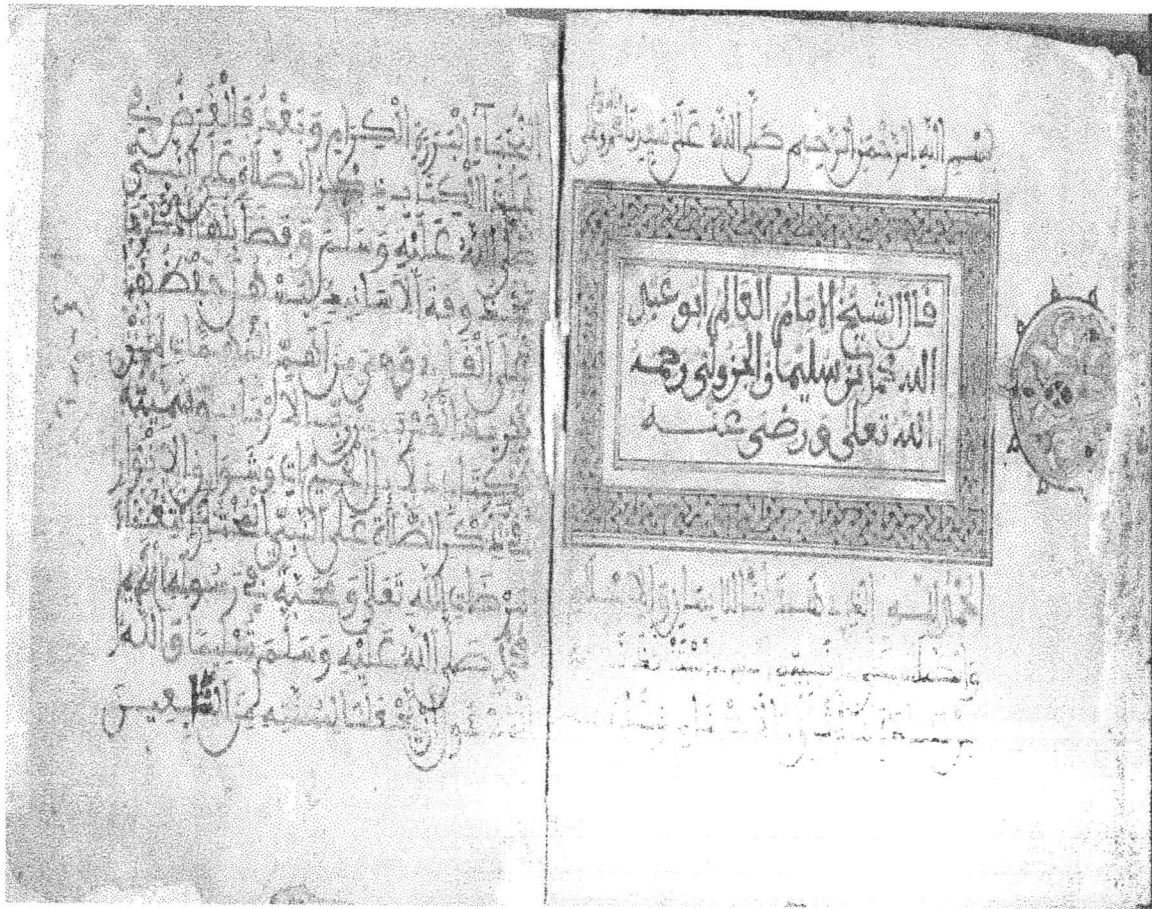 بسم الله الرحمن الرحيم صلى الله على سيدنا محمد وعلى
قال الشيخ الامام العالم ابو عبد
الله محمد بن سليمان الجزولي رحمه
الله تعلى ورضي عنه
الحمد لله الذي هدانا للايمان والاسلام
النجباء البررة الكرام وبعد فالغرض في
هذا الكتاب ذكر الصلاة على النبي
صلى الله عليه وسلم وفضائلها
نذكرها محذوفة الاسانيد ليسهل حفظها
على القارئ وهي من اهم المهمات لمن
يريد القرب من رب الارباب وسميته
بكتاب دلائل الخيرات وشوارق الانوار
في ذكر الصلاة على النبي المختار ابتغاء
لمرضات الله تعلى ومحبة في رسوله الكريم
محمد صلى الله عليه وسلم تسليما والله
المسئول ان يجعلنا لسنته من التابعين